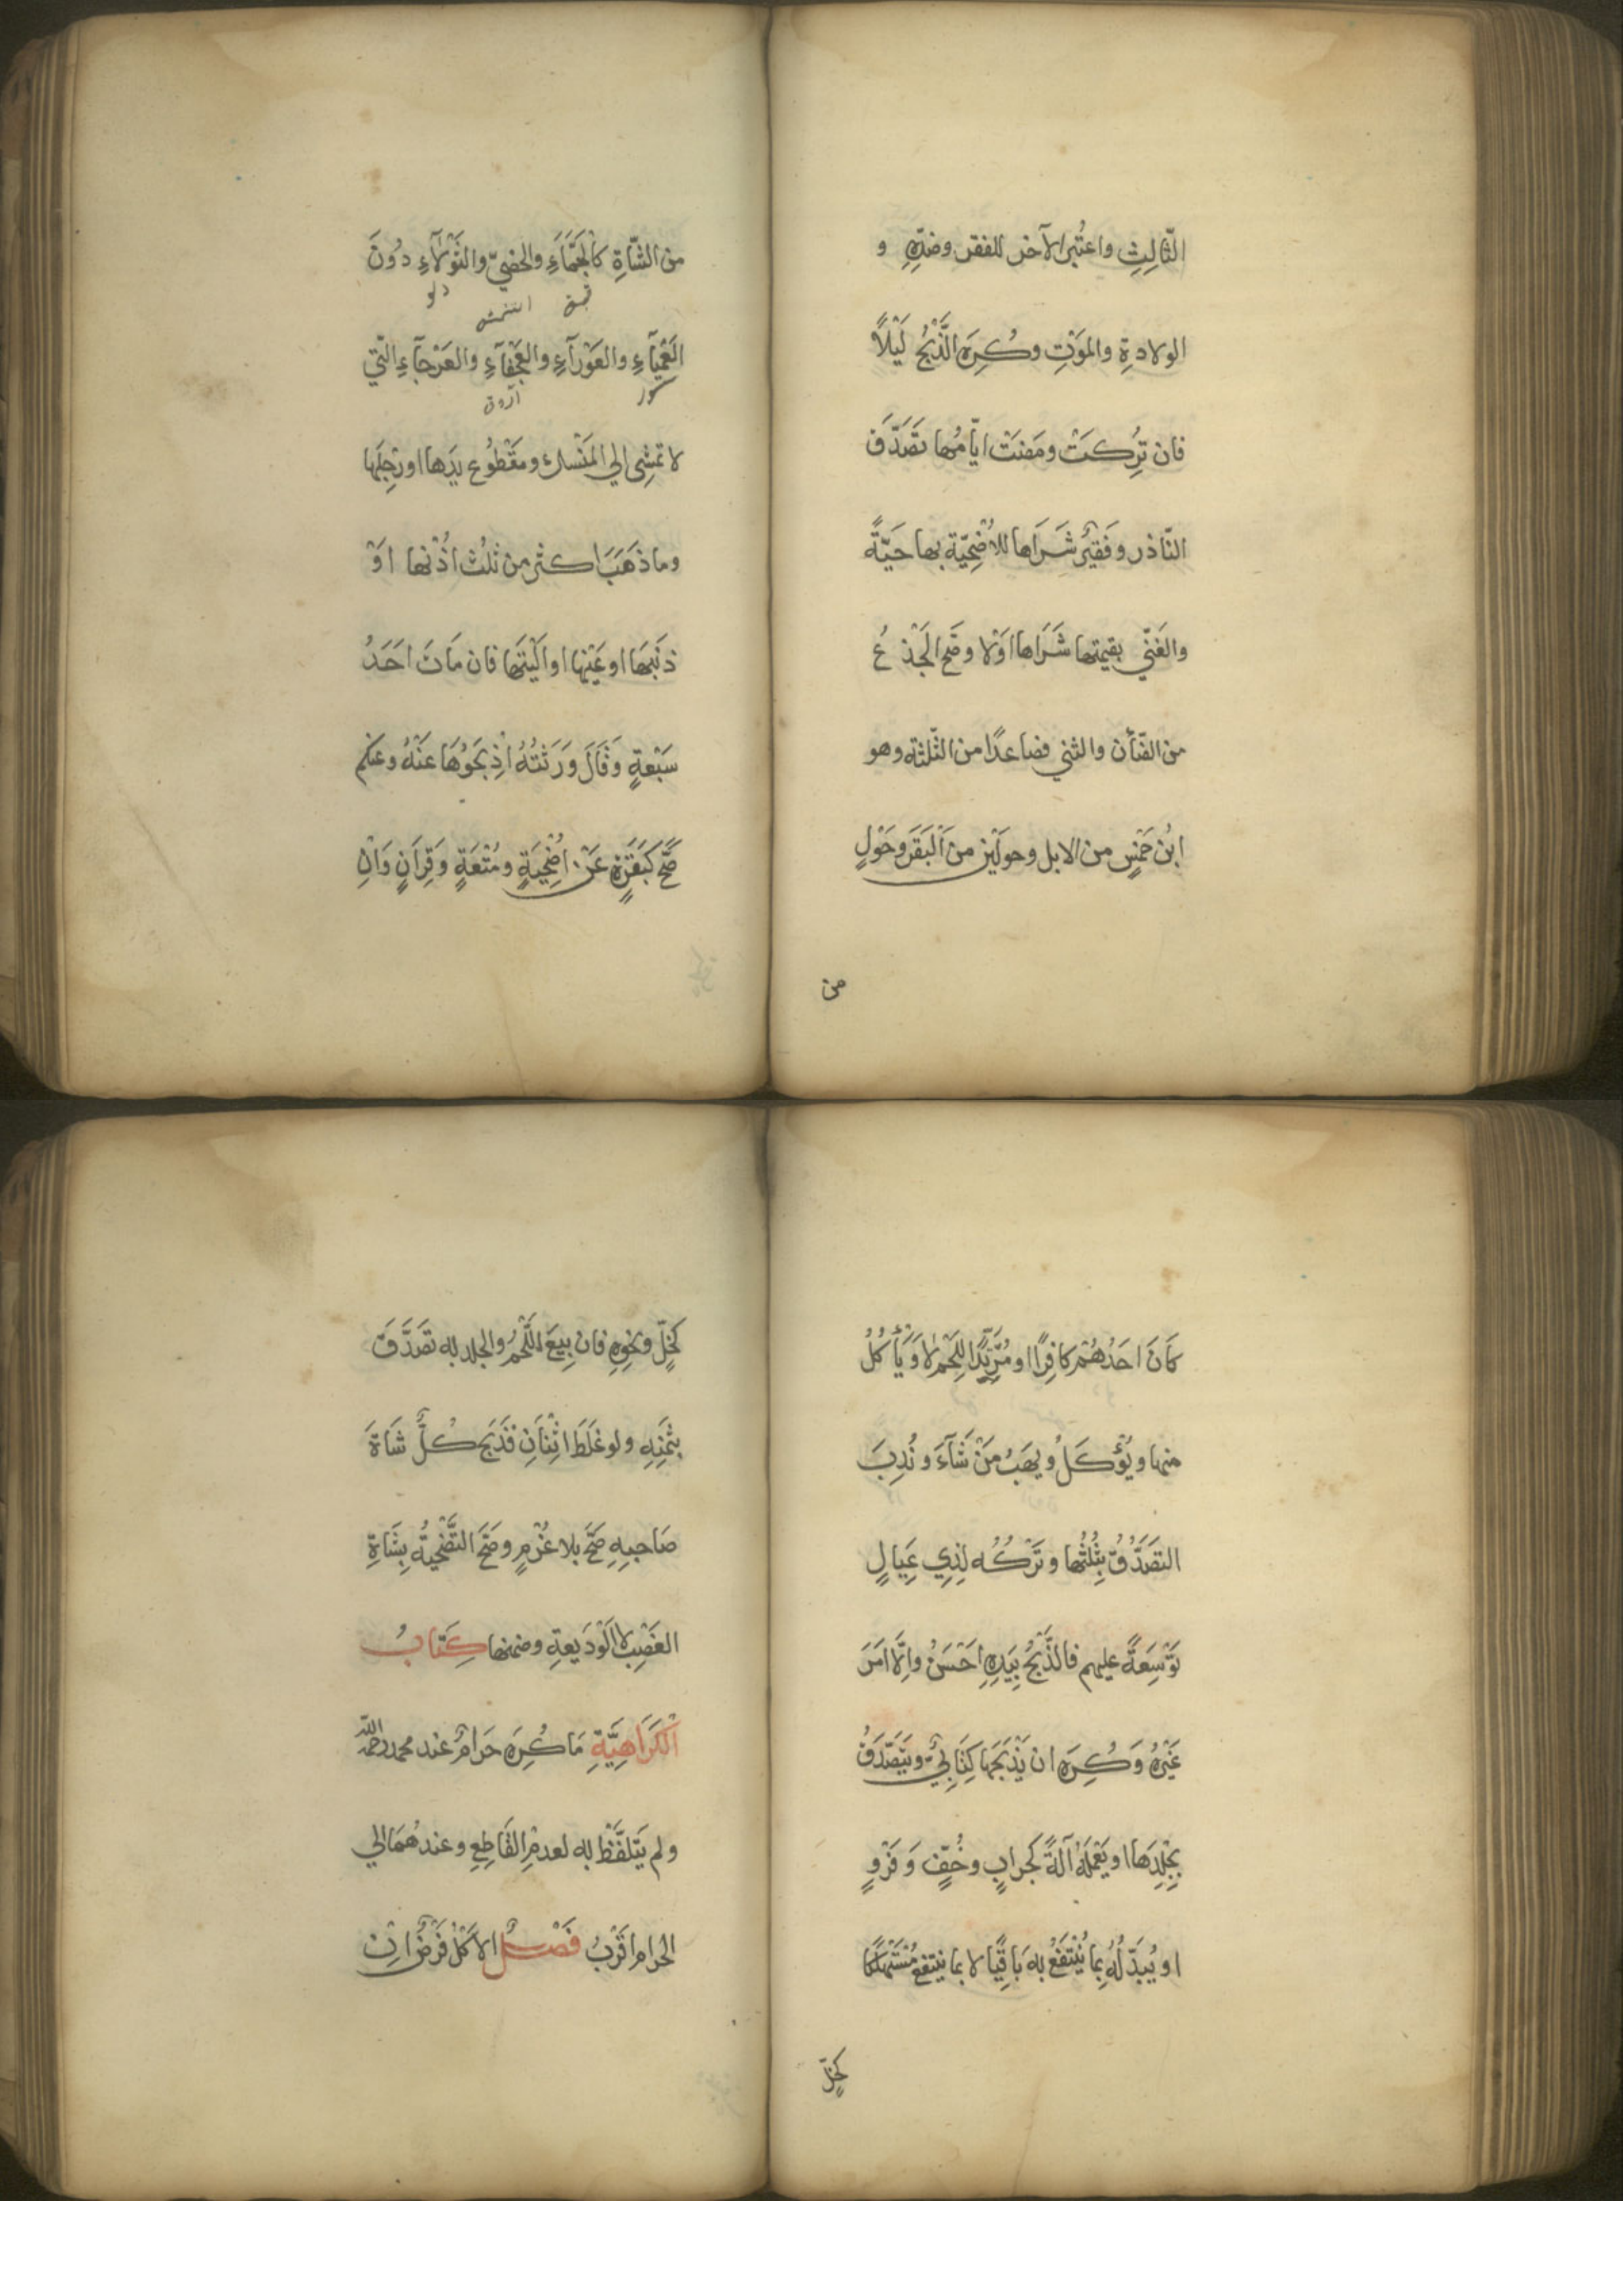 الثّالِثِ واعتُبر الآخر للفقر وضدِّهِ و
الولادةِ والموَتِ وكُرِهَ الذَّبْحُ لَيْلاً
فان تُرِكَتْ ومَضَتْ ايّامُها تَصَدَّقَ
النّاذر وفَقيرٌ شَرَاها للاُضْحِيّة بها حَيّةً
والغَنّي بقيمتها شَرَاها اوَلا وصَّح الجَذعُ
من الضّأن والثني فصاعدًا من الثّلثة وهو
ابْن خَمْسٍ من الابل وحولَيْن من اَلْبَقَر وحَوْلٍ
من
من الشّاةِ كالجَمَّاءِ والخصيّ والثَوْلآءِ دُونَ
العَمْيآءِ والعَوْرآءِ والعَجْفآءِ والعَرْجآءِ الّتي
لا تمشِى الي المَنْسك ومقْطُوع يدَها اورِجلَها
وما ذهَبَ اكثر من ثلُث اذُنها اوَْ
ذنَبِها او عَيْنِها او اَلْيَتِها فان مَاتَ احَدُ
سَبْعةٍ وَقَالَ وَرَثتُهُ اْذِبَحُوُهَا عَنْهُ وعنكم
صَّح كَبَقَرةٍ عَنْ اُضْحِيَةٍ ومُتْعَةٍ وَقِرَانٍ وَاْن
كَانَ احَدُهُمْ كافِرًا او مُرِيْدًا للِّحْم لا وَيأكُلُ
منها ويُؤْكَلُ ويهَبُ مَنْ شَآءَ ونُدِبَ
التصَدُّقُ بِثُلثُها وتَرْكُه لِذِي عِيالٍ
تَوْسِعَةً عليهم فالذَّبْحُ بِيَدِهِ احَسْنُ واِلَّا امَرَ
غَيْرَهُ وَكُرِهَ ان يَذْبَحَهَا كِتَابِيٌّ ويَتصَدَّقُ
بجْلِدِهَا او يَعْمَلهُ آلةً كجرابٍ وخُفٍّ وَفَرْوٍ
او يُبَدِّلُهُ بِمَا يُنْتَفَعُ بِه بَاقِيًا لا بما ينتفع مُسْتَهلَكًا
كخلٍّ
كخلٍّ ونحْوِهِ فان بِيعَ اللَّحْمُ والجلد به تصَدَّقَ
بثمَنِهِ ولو غَلَطَ اثْنَانِ فَذَبَحَ كُلٌّ شاةَ
صَاحِبِهِ صَحَّ بلا غُرْمٍ وصَحَّ التّضْحِيةُ بِشَاةِ
الغَصْبِ لا الوَديعةِ وضمنها كِتابُ
الكَرَاهِيَّةِ مَا كُرِهَ حَرَامٌ عند محمد رحمه الله
ولم يَتَلَفَّظْ به لعدمِ القَاطِعِ وعندهُمَا الي
الحرام اقْرَبُ فَصْلٌ الاَكْلُ فَرْضٌ اِنْ